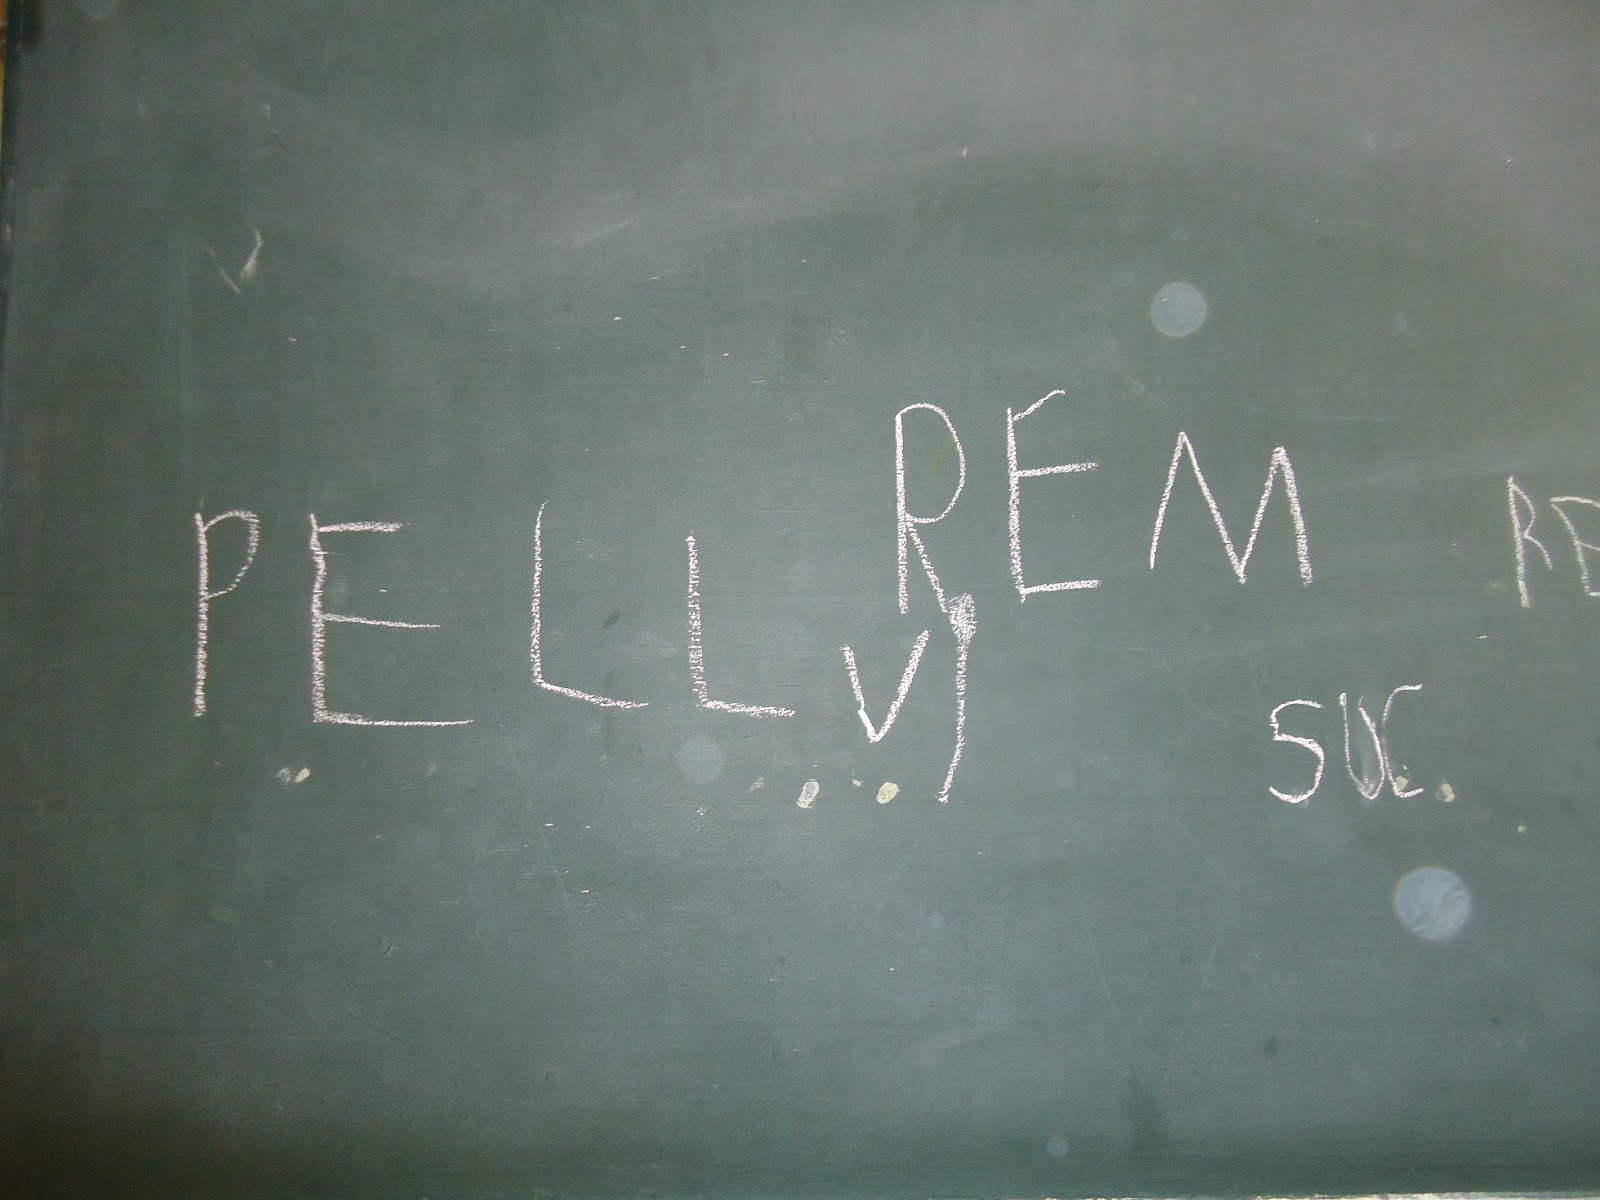 REM
RE
PELL
V
SUC